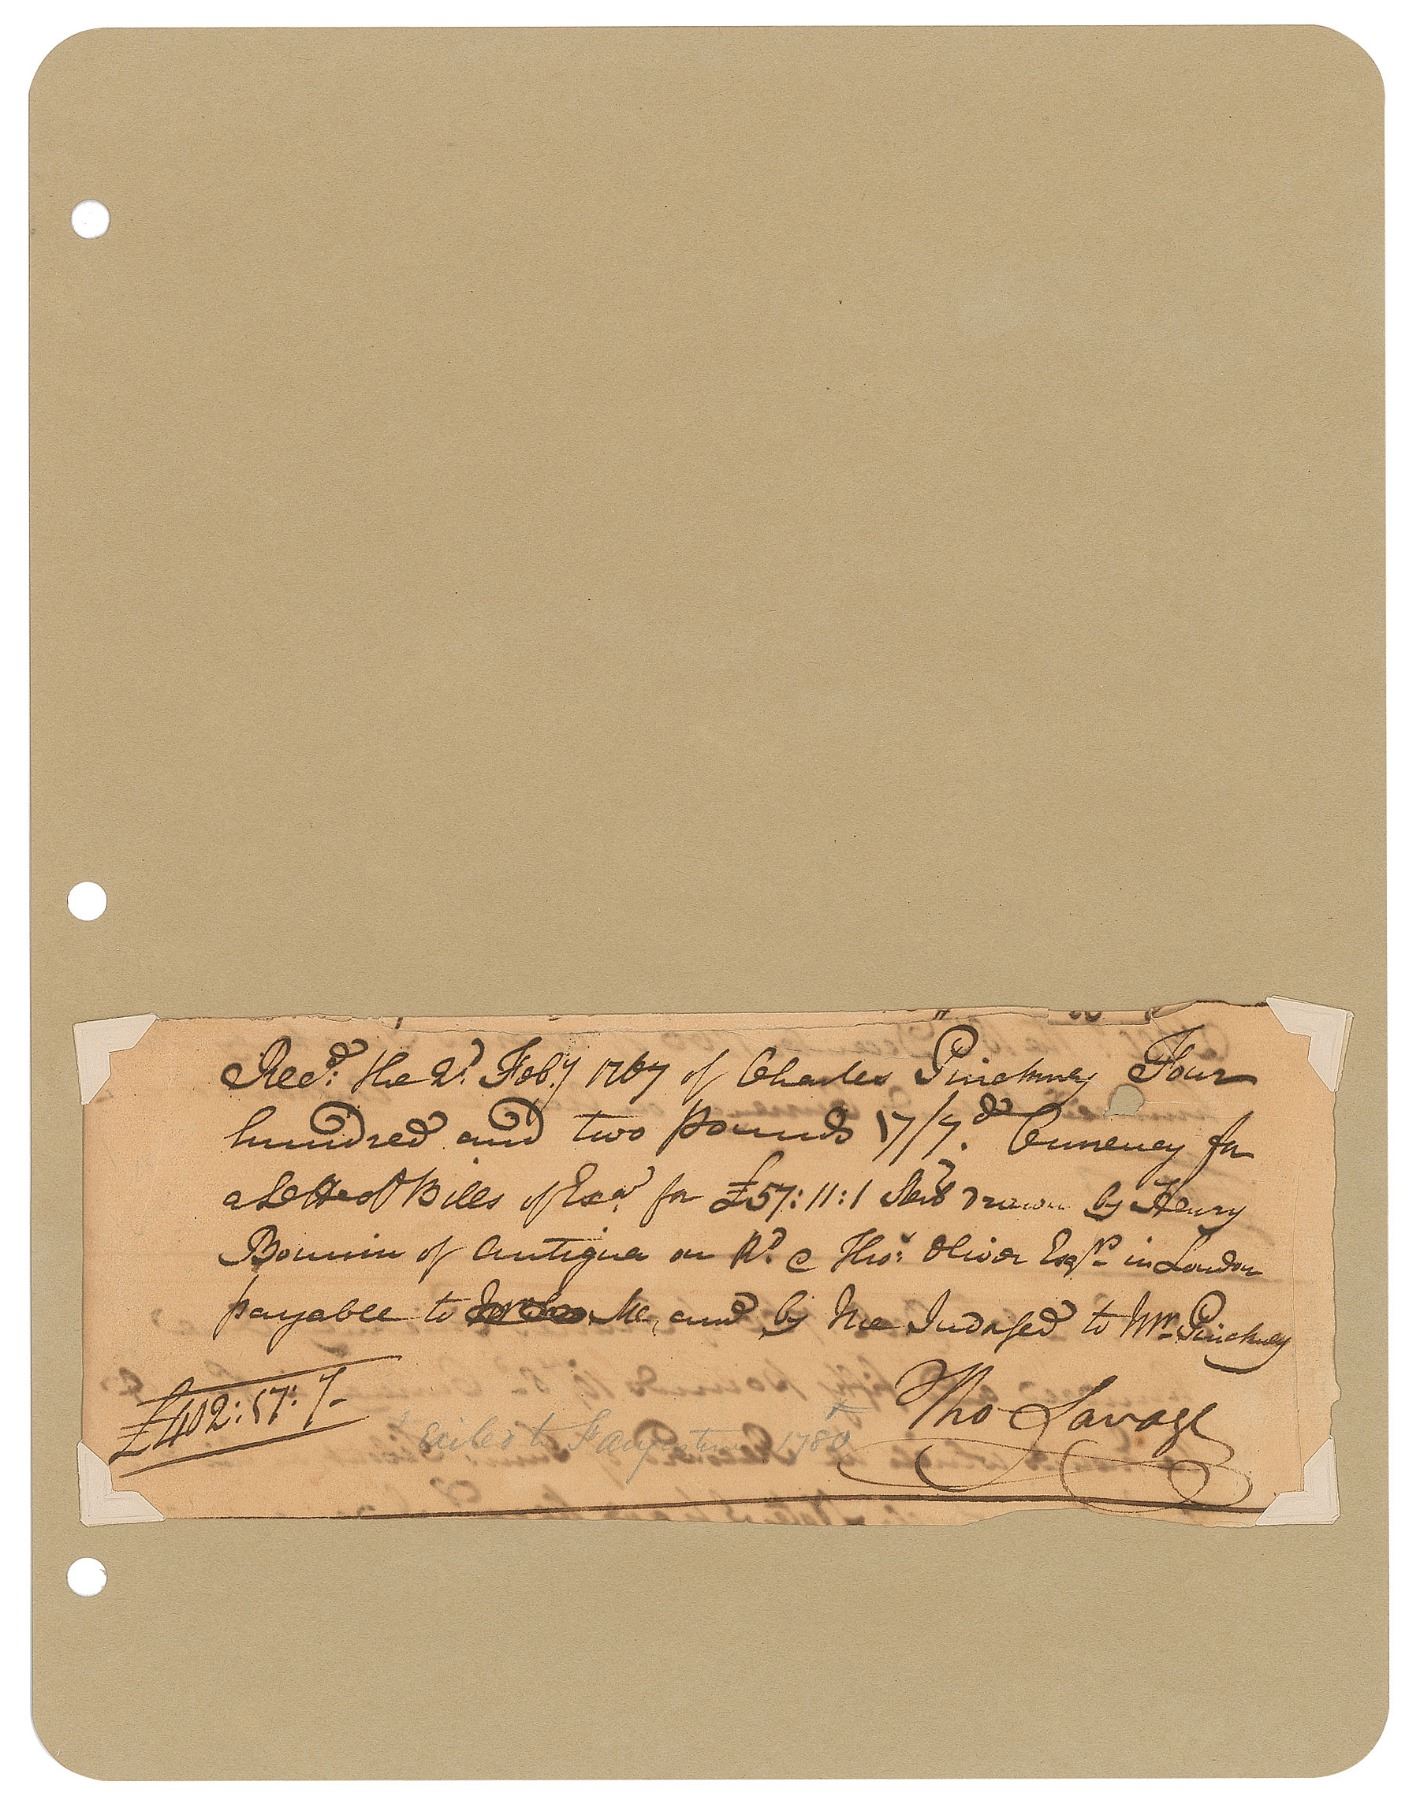 Recd: the 2d. Feby 1767 of Charles Pinckney Four
hundred and two pounds 17/7.d Currency for
a Sett of Bills of Exa. for £57:11:1 Drawn by Henry
of Antigua on Rd. & Thos: Oliver Esqrs. in London
payable to Me, and by Me Indorsed to Mr. Pinckney
£402:17:7-
Tho Savage
Exiled to St Augustine 1780